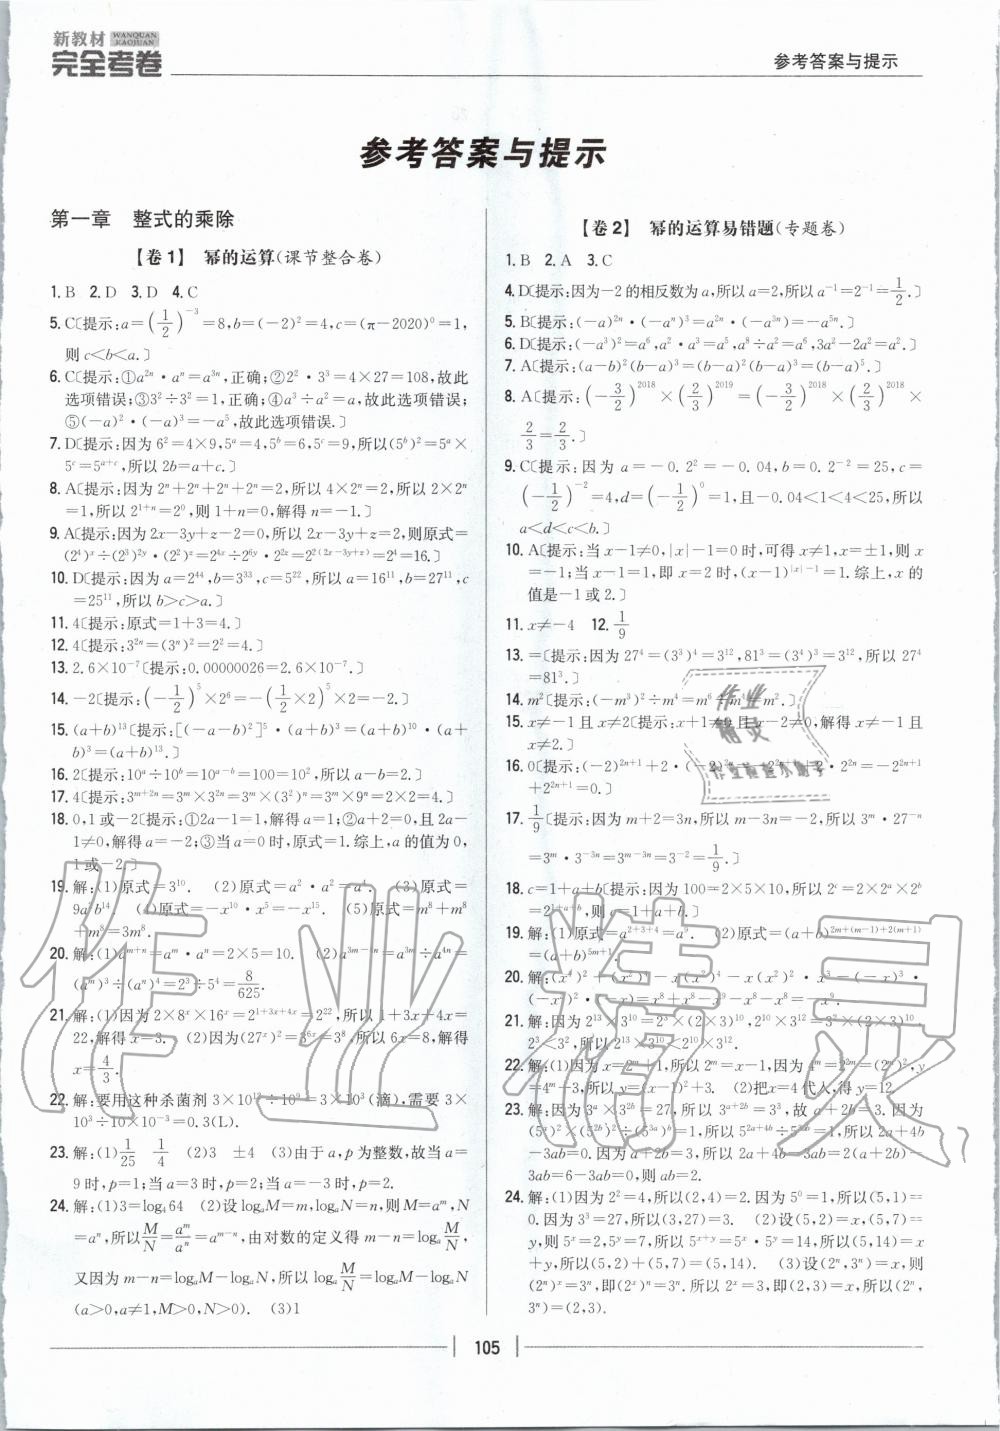 新教材 WANQUAN
KAOJUAN
完全考卷
参考答案与提示
参考答案与提示
第一章 整式的乘除
【卷1】 幂的运算(课节整合卷)
1. B 2. D 3. D 4. C
5. C〔提示:a=(1/2)^{-3}=8,b=(-2)²=4,c=(π-2020)⁰=1,
则c<b<a.〕
6. C〔提示:①a^{2n}·a^n=a^{3n},正确;②2²·3³=4×27=108,故此
选项错误;③3²÷3²=1,正确;④a³÷a²=a,故此选项错误;
⑤(-a)²·(-a)³=-a⁵,故此选项错误.〕
7. D〔提示:因为6²=4×9,5^a=4,5^b=6,5^c=9,所以(5^b)²=5^a×
5^c=5^{a+c},所以2b=a+c.〕
8. A〔提示:因为2^n+2^n+2^n+2^n=2,所以4×2^n=2,所以2×2^n
=1,所以2^{1+n}=2⁰,则1+n=0,解得n=-1.〕
9. A〔提示:因为2x-3y+z-2=0,所以2x-3y+z=2,则原式=
(2⁴)^x÷(2³)^{2y}·(2²)^z=2^{4x}÷2^{6y}·2^{2z}=2^{2(2x-3y+z)}=2⁴=16.〕
10. D〔提示:因为a=2⁴⁴,b=3³³,c=5²²,所以a=16¹¹,b=27¹¹,c
=25¹¹,所以b>c>a.〕
11. 4〔提示:原式=1+3=4.〕
12. 4〔提示:3^{2n}=(3^n)²=2²=4.〕
13. 2.6×10⁻⁷〔提示:0.00000026=2.6×10⁻⁷.〕
14. -2〔提示:(-1/2)⁵×2⁶=-(1/2×2)⁵×2=-2.〕
15. (a+b)¹³〔提示:[(-a-b)²]⁵·(a+b)³=(a+b)¹⁰·(a+
b)³=(a+b)¹³.〕
16. 2〔提示:10^a÷10^b=10^{a-b}=100=10²,所以a-b=2.〕
17. 4〔提示:3^{m+2n}=3^m×3^{2n}=3^m×(3²)^n=3^m×9^n=2×2=4.〕
18. 0,1或-2〔提示:①2a-1=1,解得a=1;②a+2=0,且2a-
1≠0,解得a=-2;③当a=0时,原式=1.综上,a的值为0,
1或-2.〕
19. 解:(1)原式=3¹⁰. (2)原式=a²·a²=a⁴. (3)原式=
9a²b¹⁴. (4)原式=-x¹⁰·x⁵=-x¹⁵. (5)原式=m⁸+m⁸
+m⁸=3m⁸.
20. 解:(1)a^{m+n}=a^m·a^n=2×5=10. (2)a^{3m-4n}=a^{3m}÷a^{4n}=
(a^m)³÷(a^n)⁴=2³÷5⁴=8/625.
21. 解:(1)因为2×8^x×16^x=2^{1+3x+4x}=2²²,所以1+3x+4x=
22,解得x=3. (2)因为(27^x)²=3^{6x}=3⁸,所以6x=8,解得
x=4/3.
22. 解:要用这种杀菌剂3×10¹²÷10⁹=3×10³(滴),需要3×
10³÷10×10⁻³=0.3(L).
23. 解:(1)1/25 1/4 (2)3 ±4 (3)由于a,p为整数,故当a=
9时,p=1;当a=3时,p=2;当a=-3时,p=2.
24. 解:(1)3=log₄64 (2)设log_aM=m,log_aN=n,则M=a^m,N
=a^n,所以M/N=a^m/a^n=a^{m-n},由对数的定义得m-n=log_a M/N,
又因为m-n=log_aM-log_aN,所以log_a M/N=log_aM-log_aN
(a>0,a≠1,M>0,N>0). (3)1
【卷2】 幂的运算易错题(专题卷)
1. B 2. A 3. C
4. D〔提示:因为-2的相反数为a,所以a=2,所以a⁻¹=2⁻¹=1/2.〕
5. B〔提示:(-a)^{2n}·(-a^n)³=a^{2n}·(-a^{3n})=-a^{5n}.〕
6. D〔提示:(-a³)²=a⁶,a²·a³=a⁵,a⁸÷a²=a⁶,3a²-2a²=a².〕
7. A〔提示:(a-b)²(b-a)³=(b-a)²(b-a)³=(b-a)⁵.〕
8. A〔提示:(-3/2)²⁰¹⁸×(2/3)²⁰¹⁹=(-3/2)²⁰¹⁸×(2/3)²⁰¹⁸×
2/3=2/3.〕
9. C〔提示:因为a=-0.2²=-0.04,b=0.2⁻²=25,c=
(-1/2)⁻²=4,d=(-1/2)⁰=1,且-0.04<1<4<25,所以
a<d<c<b.〕
10. A〔提示:当x-1≠0,|x|-1=0时,可得x≠1,x=±1,则x
=-1;当x-1=1,即x=2时,(x-1)^{|x|-1}=1.综上,x的
值是-1或2.〕
11. x≠-4 12. 1/9
13. =〔提示:因为27⁴=(3³)⁴=3¹²,81³=(3⁴)³=3¹²,所以27⁴
=81³.〕
14. m²〔提示:(-m³)²÷m⁴=m⁶÷m⁴=m².〕
15. x≠-1且x≠2〔提示:x+1≠0且x-2≠0,解得x≠-1且
x≠2.〕
16. 0〔提示:(-2)^{2n+1}+2·(-2)^{2n}=-2^{2n+1}+2·2^{2n}=-2^{2n+1}
+2^{2n+1}=0.〕
17. 1/9〔提示:因为m+2=3n,所以m-3n=-2,所以3^m·27^{-n}
=3^m·3^{-3n}=3^{m-3n}=3⁻²=1/9.〕
18. c=1+a+b〔提示:因为100=2×5×10,所以2^c=2×2^a×2^b
=2^{1+a+b},则c=1+a+b.〕
19. 解:(1)原式=a^{2+3+4}=a⁹. (2)原式=(a+b)^{2m+(m-1)+2(m+1)}
=(a+b)^{5m+1}.
20. 解:(x⁴)²+(x²)⁴-x(x²)⁴-x(x²)²·x³=(-x)³·
(-x²)²·(-x)=x⁸+x⁸-x⁹-x⁸-x⁸=-x⁹.
21. 解:因为2¹³×3¹⁰=2³×(2×3)¹⁰,2¹⁰×3¹²=3²×(2×3)¹⁰,
2³<3²,所以2¹³×3¹⁰<2¹⁰×3¹².
22. 解:(1)因为x=2^m+1,所以2^m=x-1,因为4^m=2^{2m}=(2^m)²,y
=4^m+3,所以y=(x-1)²+3. (2)把x=4代入,得y=12.
23. 解:因为3^a×3^{2b}=27,所以3^{a+2b}=3³,故a+2b=3.因为
(5^a)²×(5^{2b})²÷(5^{3a})^b=1,所以5^{2a+4b}÷5^{3ab}=1,所以2a+4b
-3ab=0.因为a+2b=3,所以2a+4b-3ab=2(a+2b)-
3ab=6-3ab=0,则ab=2.
24. 解:(1)因为2²=4,所以(2,4)=2.因为5⁰=1,所以(5,1)=
0.因为3³=27,所以(3,27)=3. (2)设(5,2)=x,(5,7)=
y,则5^x=2,5^y=7,所以5^{x+y}=5^x·5^y=14,所以(5,14)=x
+y,所以(5,2)+(5,7)=(5,14). (3)设(2^n,3^n)=x,则
(2^n)^x=3^n,即(2^x)^n=3^n.所以2^x=3,即(2,3)=x,所以(2^n,
3^n)=(2,3).
105
作业精灵
作业
精灵